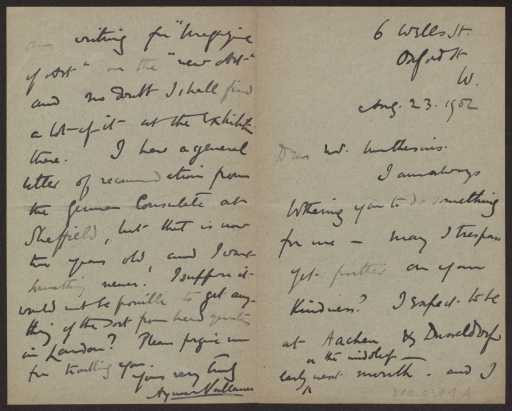 6 Wells St.
Oxford St
W.
Aug. 23. 1902
Dear Mr. Muthesius.
I am always
bothering you to do something
for me – may I trespass
yet further on your
kindness? I expect to be
at Aachen & Dusseldorf
or the middle of
early next month – and I
am writing for "Magazine
of Art" on the "new Art"
and no doubt I shall find
a lot of it at the Exhibition
there. I have a general
letter of recommendation from
the German Consulate at
Sheffield, but that is now
two years old, and I want
something newer. I suppose it
would not be possible to get any-
thing of the sort from head quarters
in London? Please forgive me
for troubling you.
Yours very truly
Aymer Vallance